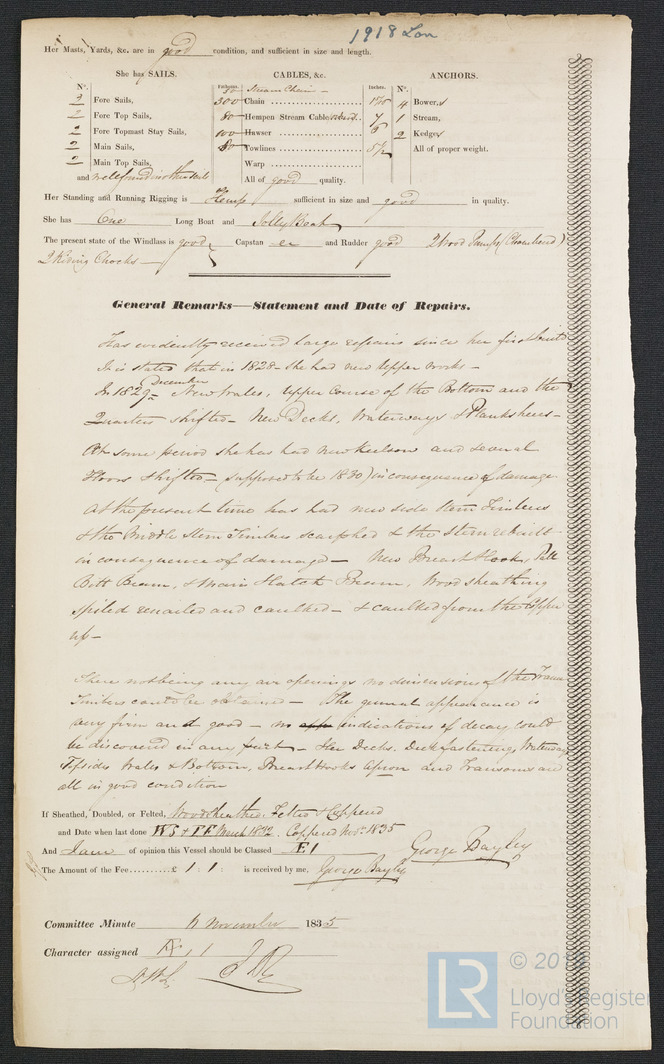 1918 Lon
Her Masts, Yards, &c. are in good condition, and sufficient in size and length.
She has SAILS.
CABLES, &c.
ANCHORS.
Nº.
2 Fore Sails,
2 Fore Top Sails,
2 Fore Topmast Stay Sails,
2 Main Sails,
2 Main Top Sails,
and well found in other sails
Fathoms.
Inches.
Stream Chain –
300 Chain
80 Hempen Stream Cable
7
100 Hawser
80 Towlines
5½
Warp
All of good quality.
Nº.
4 Bowers,
1 Stream,
2 Kedges
All of proper weight.
Her Standing and Running Rigging is Hemp sufficient in size and good in quality.
She has One Long Boat and Jolly Boat
The present state of the Windlass is good Capstan and Rudder good 2 Wood Pumps
2 Riding Chocks –
General Remarks—Statement and Date of Repairs.
Has evidently received large repairs since her first built
It is stated that in 1828 – she had new Upper works –
In 1829 – December New Wales, Upper Course of the Bottom and the
Quarters shifted – New Decks, Waterways & Planksheers –
At some period she has had new Keelson and several
Floors shifted – (supposed to be 1830) in consequence of damage
At the present time has had new side Stern Timbers
& the Middle Stern Timbers scarphed & the Stern rebuilt
in consequence of damage – New Breast Hook, Pall
Bitt Beam, & Main Hatch Beam, Wood sheathing
spiled renailed and caulked – & caulked from the Copper
up –
There not being any air openings no dimensions of the Frame
Timbers could be obtained – The general appearance is
very firm and good – no indications of decay could
be discovered in any part – Her Decks, Deck fastenings, Waterways
Topsides Wales & Bottom, Breast Hooks Apron and Transoms are
all in good condition
If Sheathed, Doubled, or Felted, Wood sheathed Felted & Coppered
and Date when last done WS & FF March 1832. Coppered Novr. 1835
And I am of opinion this Vessel should be Classed E1 George Bayley
The Amount of the Fee...........£ 1 : 1 : is received by me, George Bayley
Committee Minute 6 November 1835
Character assigned
LR
Lloyd's Register
Foundation